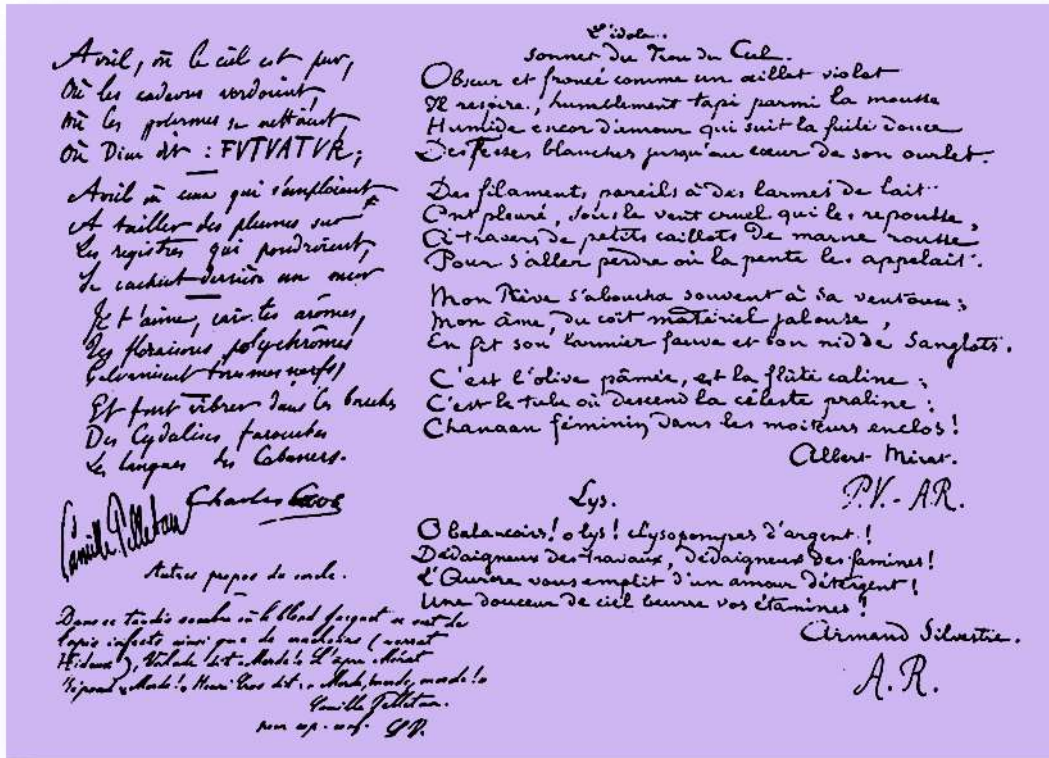 Avril, où le ciel est pur,
Où les cadavres verdoient,
Où les
Où Dieu dit : FVTVATVR,
Avril où ceux qui s'emploient
A tailler des plumes sur
Les registres qui poudroient,
Se cachent derrière un mur
Je t'aime, car tes arômes,
Tes floraisons polychrômes
Galvanisent tous mes nerfs,
Et font vibrer dans les bouches
Des Cydalises farouches
Les langues des Cabaners.
Charles Cros
Camille Pelletan
Autres propos du cercle.
Dans ce taudis sombre où le blond jacquet se sert de
Tapis infects ainsi que de
Hideux), Valade dit « Merde! » L'âpre Mérat
Répond « Merde! » Henri Cros dit : « Merde, merde, merde! »
Camille Pelletan.
pour cop. conf. P.V.
L'idole.
Sonnet du Trou du Cul.
Obscur et froncé comme un œillet violet
Il respire, humblement tapi parmi la mousse
Humide encor d'amour qui suit la fuite douce
Des Fesses blanches jusqu'au cœur de son ourlet.
Des filaments pareils à des larmes de lait
Ont pleuré, sous le vent cruel qui les repousse,
À travers de petits caillots de marne rousse
Pour s'aller perdre où la pente les appelait.
Mon Rêve s'aboucha souvent à sa ventouse ;
Mon âme, du coït matériel jalouse,
En fit son larmier fauve et son nid de Sanglots.
C'est l'olive pâmée, et la flûte caline ;
C'est le tube où descend la céleste praline :
Chanaan féminin dans les moiteurs enclos !
Albert Mérat.
P.V. - A.R.
Lys.
O balançoirs ! o lys ! clysopompes d'argent !
Dédaigneux des travaux, dédaigneux des famines !
L'Aurore vous emplit d'un amour détergent !
Une douceur de ciel beurre vos étamines !
Armand Silvestre.
A.R.